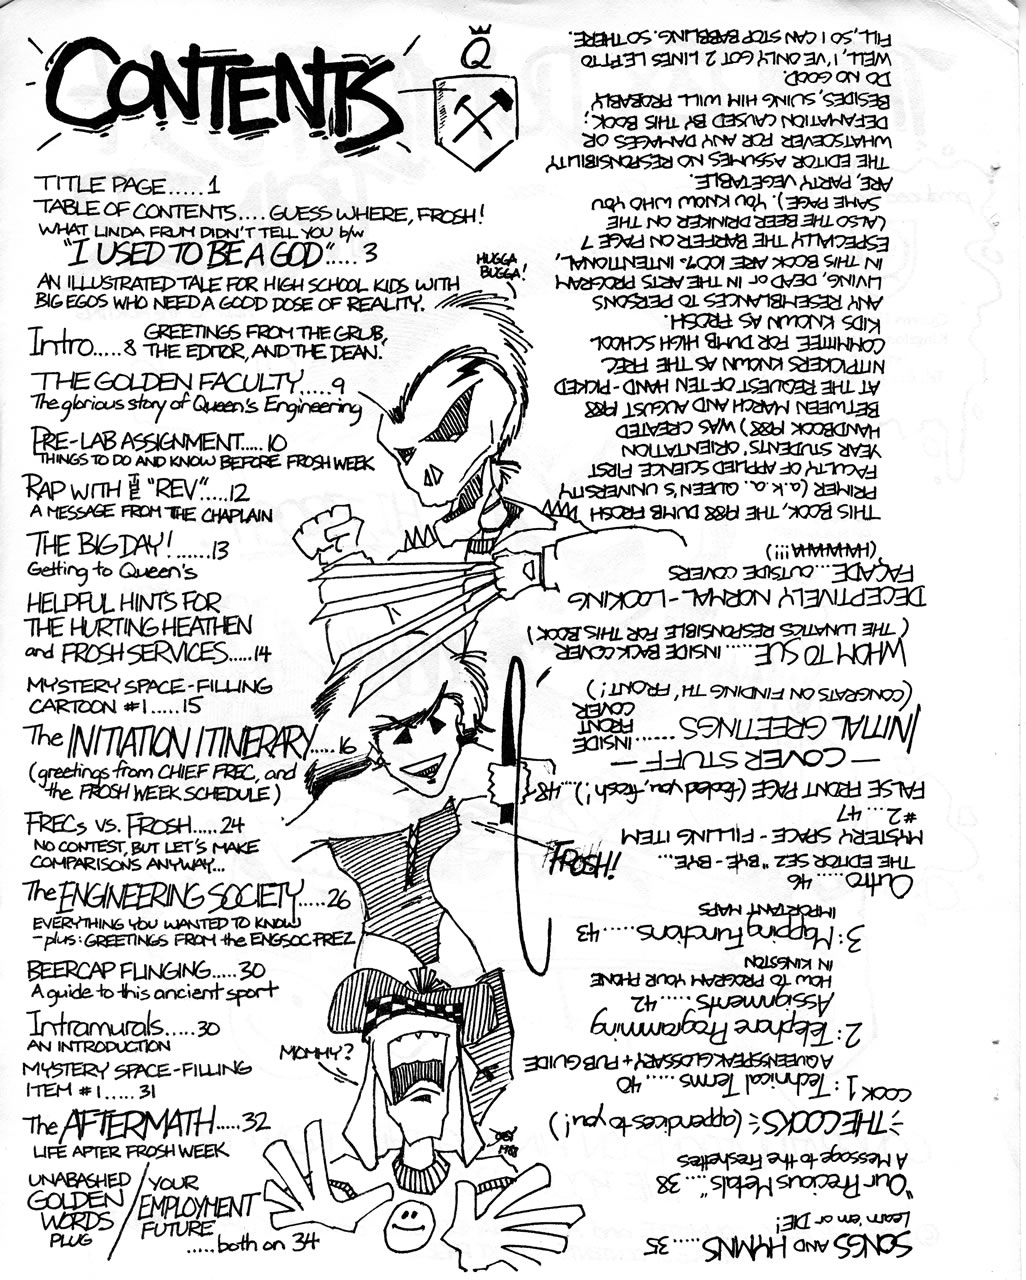 CONTENTS
Q
TITLE PAGE.....1
TABLE OF CONTENTS.... GUESS WHERE, FROSH!
WHAT LINDA FRUM DIDN'T TELL YOU b/w
"I USED TO BE A GOD"..... 3
AN ILLUSTRATED TALE FOR HIGH SCHOOL KIDS WITH
BIG EGOS WHO NEED A GOOD DOSE OF REALITY.
Intro.....8 GREETINGS FROM THE GRUB,
THE EDITOR, AND THE DEAN.
THE GOLDEN FACULTY....9
The glorious story of Queen's Engineering
PRE-LAB ASSIGNMENT..... 10
THINGS TO DO AND KNOW BEFORE FROSH WEEK
RAP WITH THE "REV".....12
A MESSAGE FROM THE CHAPLAIN
THE BIG DAY!......13
Getting to Queen's
HELPFUL HINTS FOR
THE HURTING HEATHEN
and FROSH SERVICES.....14
MYSTERY SPACE-FILLING
CARTOON #1.....15
The INITIATION ITINERARY.....16
(greetings from CHIEF FREC, and
the FROSH WEEK SCHEDULE)
FRECs vs. FROSH.....24
NO CONTEST, BUT LET'S MAKE
COMPARISONS ANYWAY...
The ENGINEERING SOCIETY.....26
EVERYTHING YOU WANTED TO KNOW
-plus: GREETINGS FROM the ENGSOC PREZ
BEERCAP FLINGING.....30
A guide to this ancient sport
Intramurals.....30
AN INTRODUCTION
MYSTERY SPACE-FILLING
ITEM #1.....31
The AFTERMATH.....32
LIFE AFTER FROSH WEEK
UNABASHED
GOLDEN
WORDS
PLUG
/ YOUR
EMPLOYMENT
FUTURE
.....both on 34
HUGGA
BUGGA!
FROSH!
MOMMY?
SONGS AND HYMNS.....35
Learn 'em or DIE!
"Our Precious Metals".....38
A Message to the Freshettes
THE COOKS (appendices to you!)
COOK 1: Technical Terms.....40
A QUEENSPEAK GLOSSARY + PUB GUIDE
2: Telephone Programming
Assignments.....42
HOW TO PROGRAM YOUR PHONE
IN KINGSTON
3: Mapping Functions.....43
IMPORTANT MAPS
Outro.....46
THE EDITOR SEZ "BYE-BYE...
MYSTERY SPACE-FILLING ITEM
#2....47
FALSE FRONT PAGE (fooled you, frosh!)....48
— COVER STUFF —
INITIAL GREETINGS...... INSIDE
FRONT
COVER
(CONGRATS ON FINDING TH' FRONT!)
WHOM TO SUE..... INSIDE BACK COVER
(THE LUNATICS RESPONSIBLE FOR THIS BOOK)
DECEPTIVELY NORMAL-LOOKING
FAÇADE...OUTSIDE COVERS
(HAHAHAHA!!!)
THIS BOOK, THE 1988 DUMB FROSH
PRIMER (a.k.a. QUEEN'S UNIVERSITY
FACULTY OF APPLIED SCIENCE FIRST
YEAR STUDENTS' ORIENTATION
HANDBOOK 1988) WAS CREATED
BETWEEN MARCH AND AUGUST 1988
AT THE REQUEST OF TEN HAND-PICKED
NITPICKERS KNOWN AS THE FREC
COMMITTEE FOR DUMB HIGH SCHOOL
KIDS KNOWN AS FROSH.
ANY RESEMBLANCES TO PERSONS
LIVING, DEAD or IN THE ARTS PROGRAM
IN THIS BOOK ARE 100% INTENTIONAL,
ESPECIALLY THE BARFER ON PAGE 7
(ALSO THE BEER DRINKER ON THE
SAME PAGE). YOU KNOW WHO YOU
ARE, PARTY VEGETABLE.
THE EDITOR ASSUMES NO RESPONSIBILITY
WHATSOEVER FOR ANY DAMAGES OR
DEFAMATION CAUSED BY THIS BOOK;
BESIDES, SUING HIM WILL PROBABLY
DO NO GOOD.
WELL, I'VE ONLY GOT 2 LINES LEFT TO
FILL, SO I CAN STOP BABBLING. SO THERE.